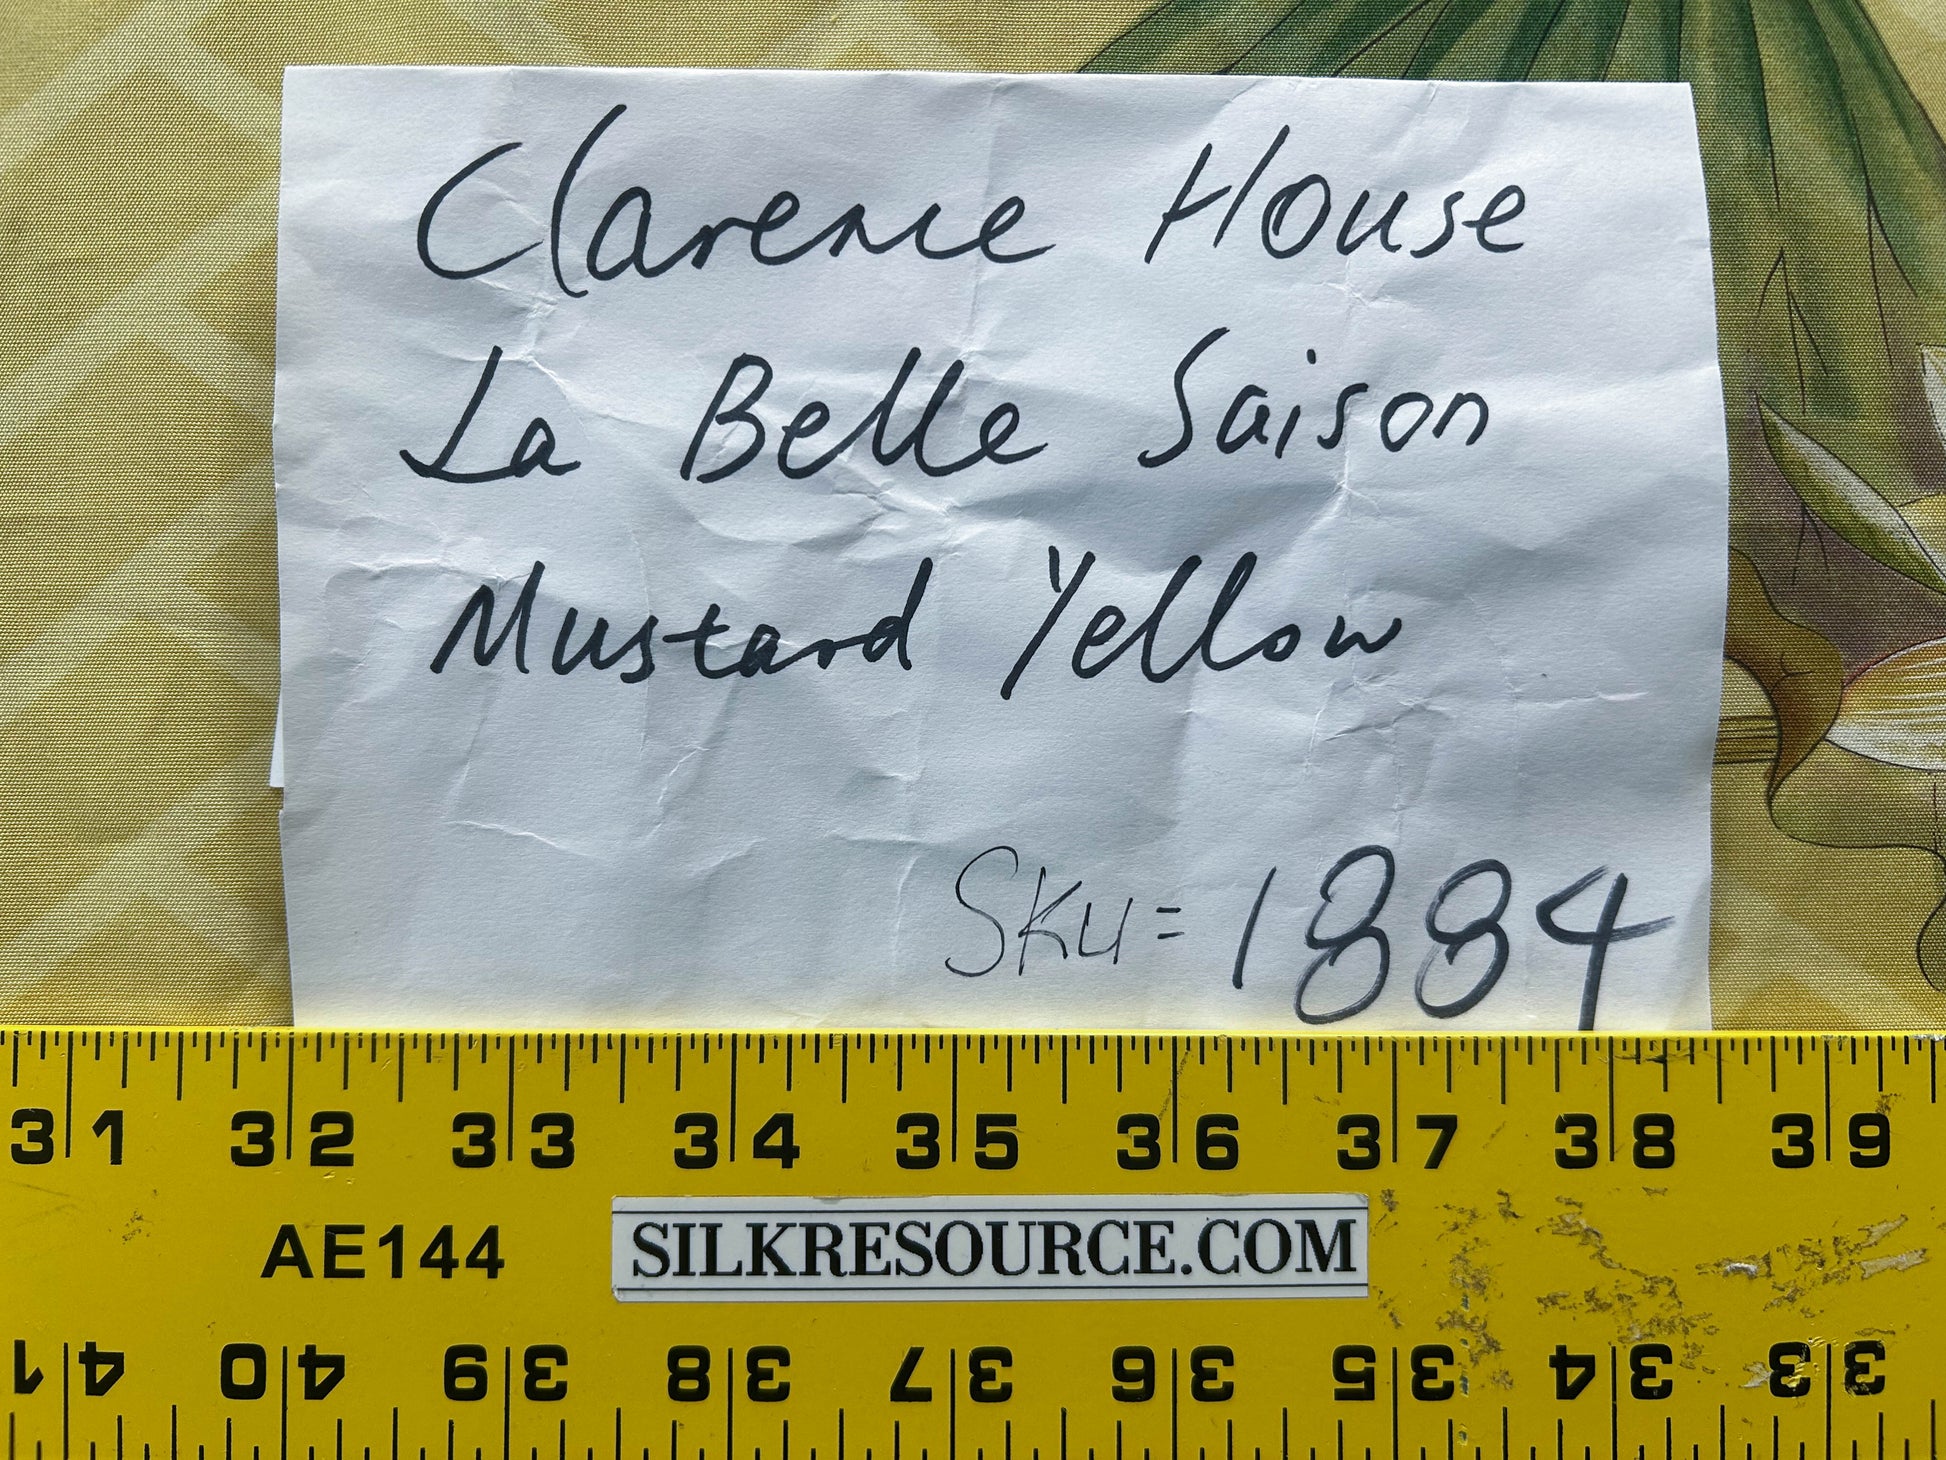 Clarence House
La Belle Saison
Mustard Yellow
SKU = 1884
31 32 33 34 35 36 37 38 39
AE144
SILKRESOURCE.COM
41 40 39 38 37 36 35 34 33